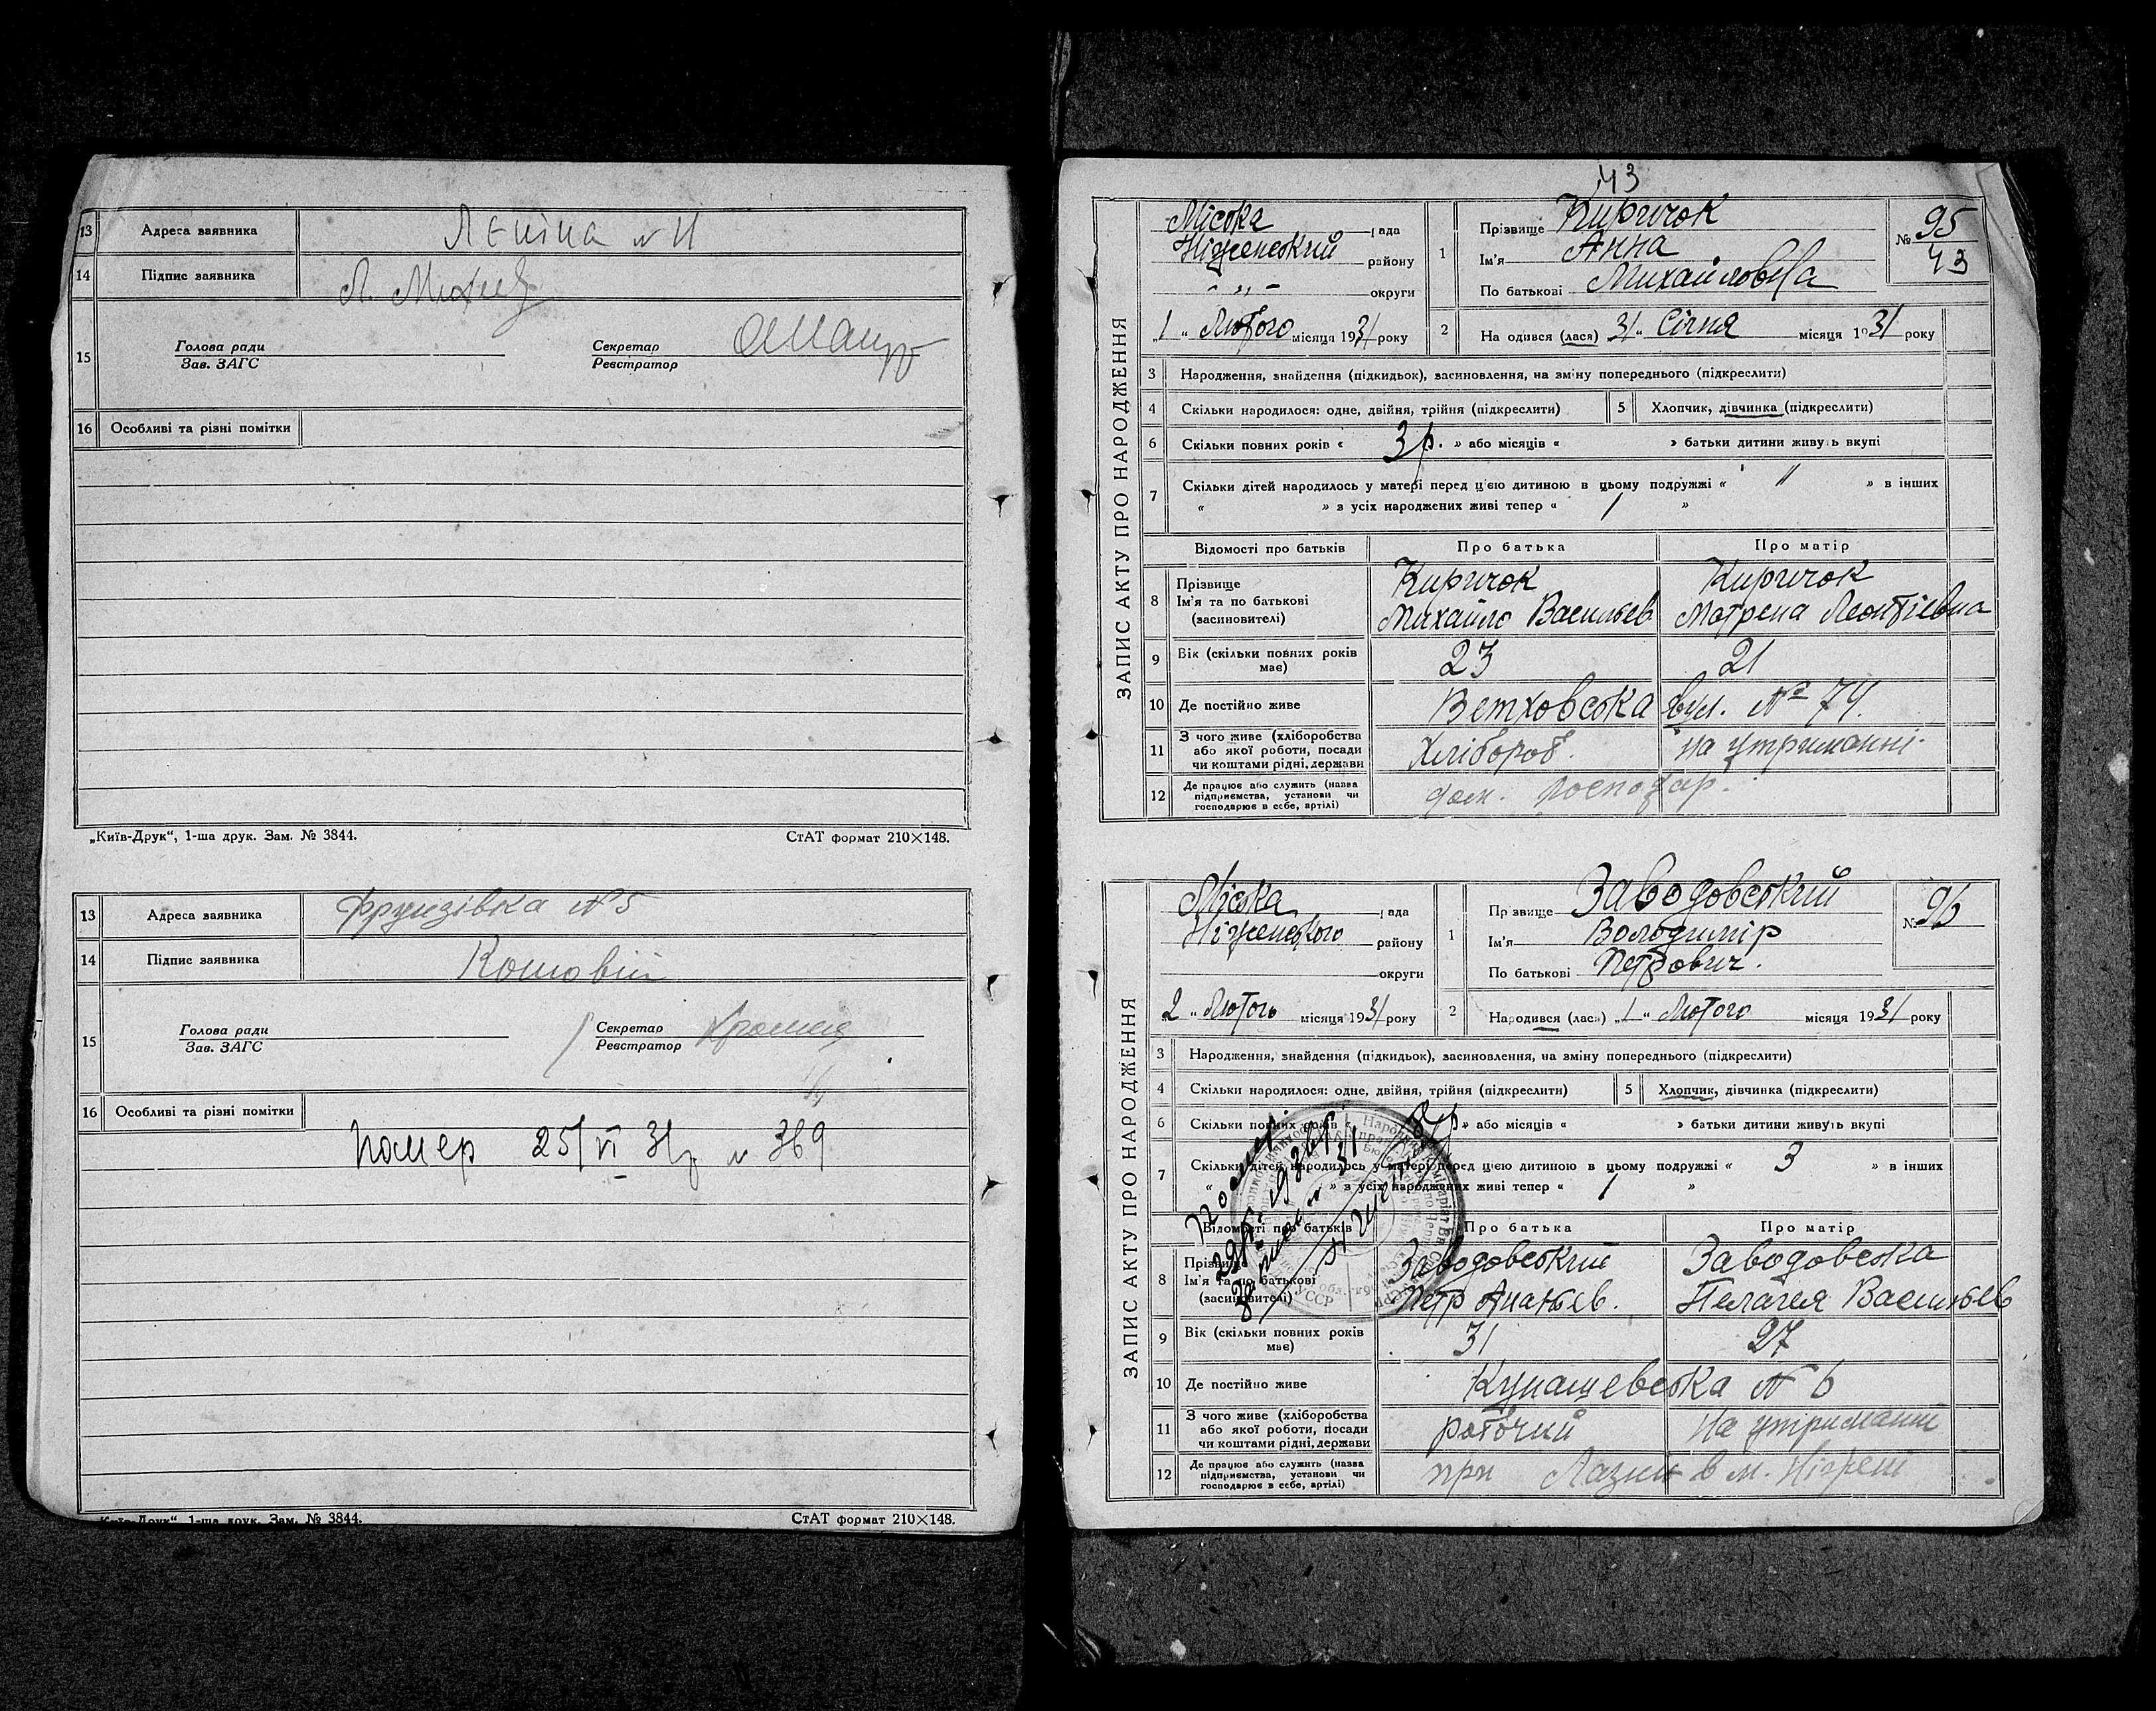 13 Адреса заявника Леніна № 11
14 Підпис заявника Л.
15 Голова ради Секретар
Зав. ЗАГС Реєстратор
16 Особливі та різні помітки
„Київ-Друк“, 1-ша друк. Зам. № 3844. СтАТ формат 210×148.
13 Адреса заявника Фрунзівка № 5
14 Підпис заявника
15 Голова ради Секретар
Зав. ЗАГС Реєстратор
16 Особливі та різні помітки
Помер 25/VI 31р № 369
„Київ-Друк“, 1-ша друк. Зам. № 3844. СтАТ формат 210×148.
43
ЗАПИС АКТУ ПРО НАРОДЖЕННЯ
Міська рада
Ніженський району
- „ - округи
„1“ Лютого місяця 1931 року
1 Прізвище Киричок
Ім'я Анна
По батькові Михайловна
№ 95
43
2 Народився (лася) 31 „ Січня місяця 1931 року
3 Народження, знайдення (підкидьок), засиновлення, на зміну попереднього (підкреслити)
4 Скільки народилося: одне, двійня, трійня (підкреслити) 5 Хлопчик, дівчинка (підкреслити)
6 Скільки повних років « 3 р. » або місяців « » батьки дитини живуть вкупі
7 Скільки дітей народилось у матері перед цією дитиною в цьому подружжі « » в інших
« » з усіх народжених живі тепер « 1 »
Відомості про батьків Про батька Про матір
8 Прізвище Киричок Киричок
Ім'я та по батькові Михайло Васильев Мотрена Леонтіевна
(засиновителі)
9 Вік (скільки повних років має) 23 21
10 Де постійно живе Ветховська вул. № 74.
11 З чого живе (хліборобства Хлібороб. на утриманні.
або якої роботи, посади
чи коштами рідні, держави
12 Де працює або служить (назва дом. господар.
підприємства, установи чи
господарює в себе, артілі)
ЗАПИС АКТУ ПРО НАРОДЖЕННЯ
Міська рада
Ніженського району
округи
„2„ Лютого місяця 1931 року
1 Прізвище Заводовський
Ім'я Володимір
По батькові Петрович.
№ 96
2 Народився (лася) „1“ Лютого місяця 1931 року
3 Народження, знайдення (підкидьок), засиновлення, на зміну попереднього (підкреслити)
4 Скільки народилося: одне, двійня, трійня (підкреслити) 5 Хлопчик, дівчинка (підкреслити)
6 Скільки повних років « 8 р » або місяців « » батьки дитини живуть вкупі
7 Скільки дітей народилось у матері перед цією дитиною в цьому подружжі « 3 » в інших
« » з усіх народжених живі тепер « 1 »
Відомості про батьків Про батька Про матір
8 Прізвище Заводовський Заводовська
Ім'я та по батькові Петр Ананьев. Пелагея Васильев
(засиновителі)
9 Вік (скільки повних років має) 31 27
10 Де постійно живе Кунашевська № 6
11 З чого живе (хліборобства робочий На утриманні
або якої роботи, посади
чи коштами рідні, держави
12 Де працює або служить (назва при Лазні в м. Ніжені
підприємства, установи чи
господарює в себе, артілі)